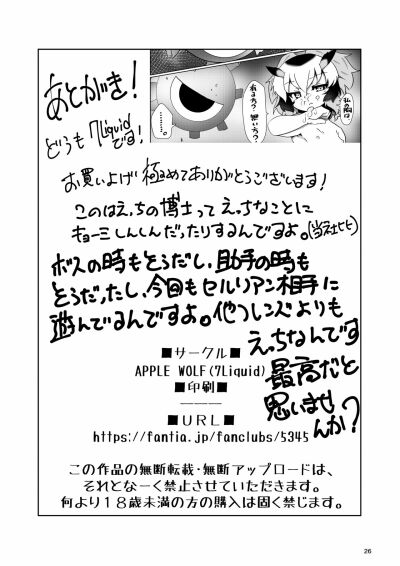 私の胸は
ある方?無い方?
………。
あとがき!
どうも7Liquidです!
お買いよげ極めてありがとうございます!
このはえっちの博士ってえっちなことに
キョーミしんしんだったりするんですよ。(当社比)
ボスの時もそうだし、助手の時も
そうだったし、今回もセルリアン相手に
遊んでるんですよ。他フレンズよりも
えっちなんです
最高だと
思いませ
んか?
■サークル■
APPLE WOLF(7Liquid)
■印刷■
────
■URL■
https://fantia.jp/fanclubs/5345
この作品の無断転載・無断アップロードは、
それとなーく禁止させていただきます。
何より18歳未満の方の購入は固く禁じます。
26